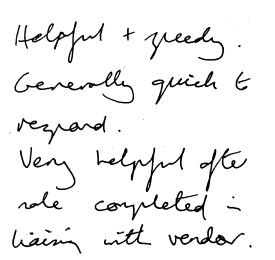 Helpful + speedy.
Generally quick to
respond.
Very helpful after
sale completed in
liaising with vendor.